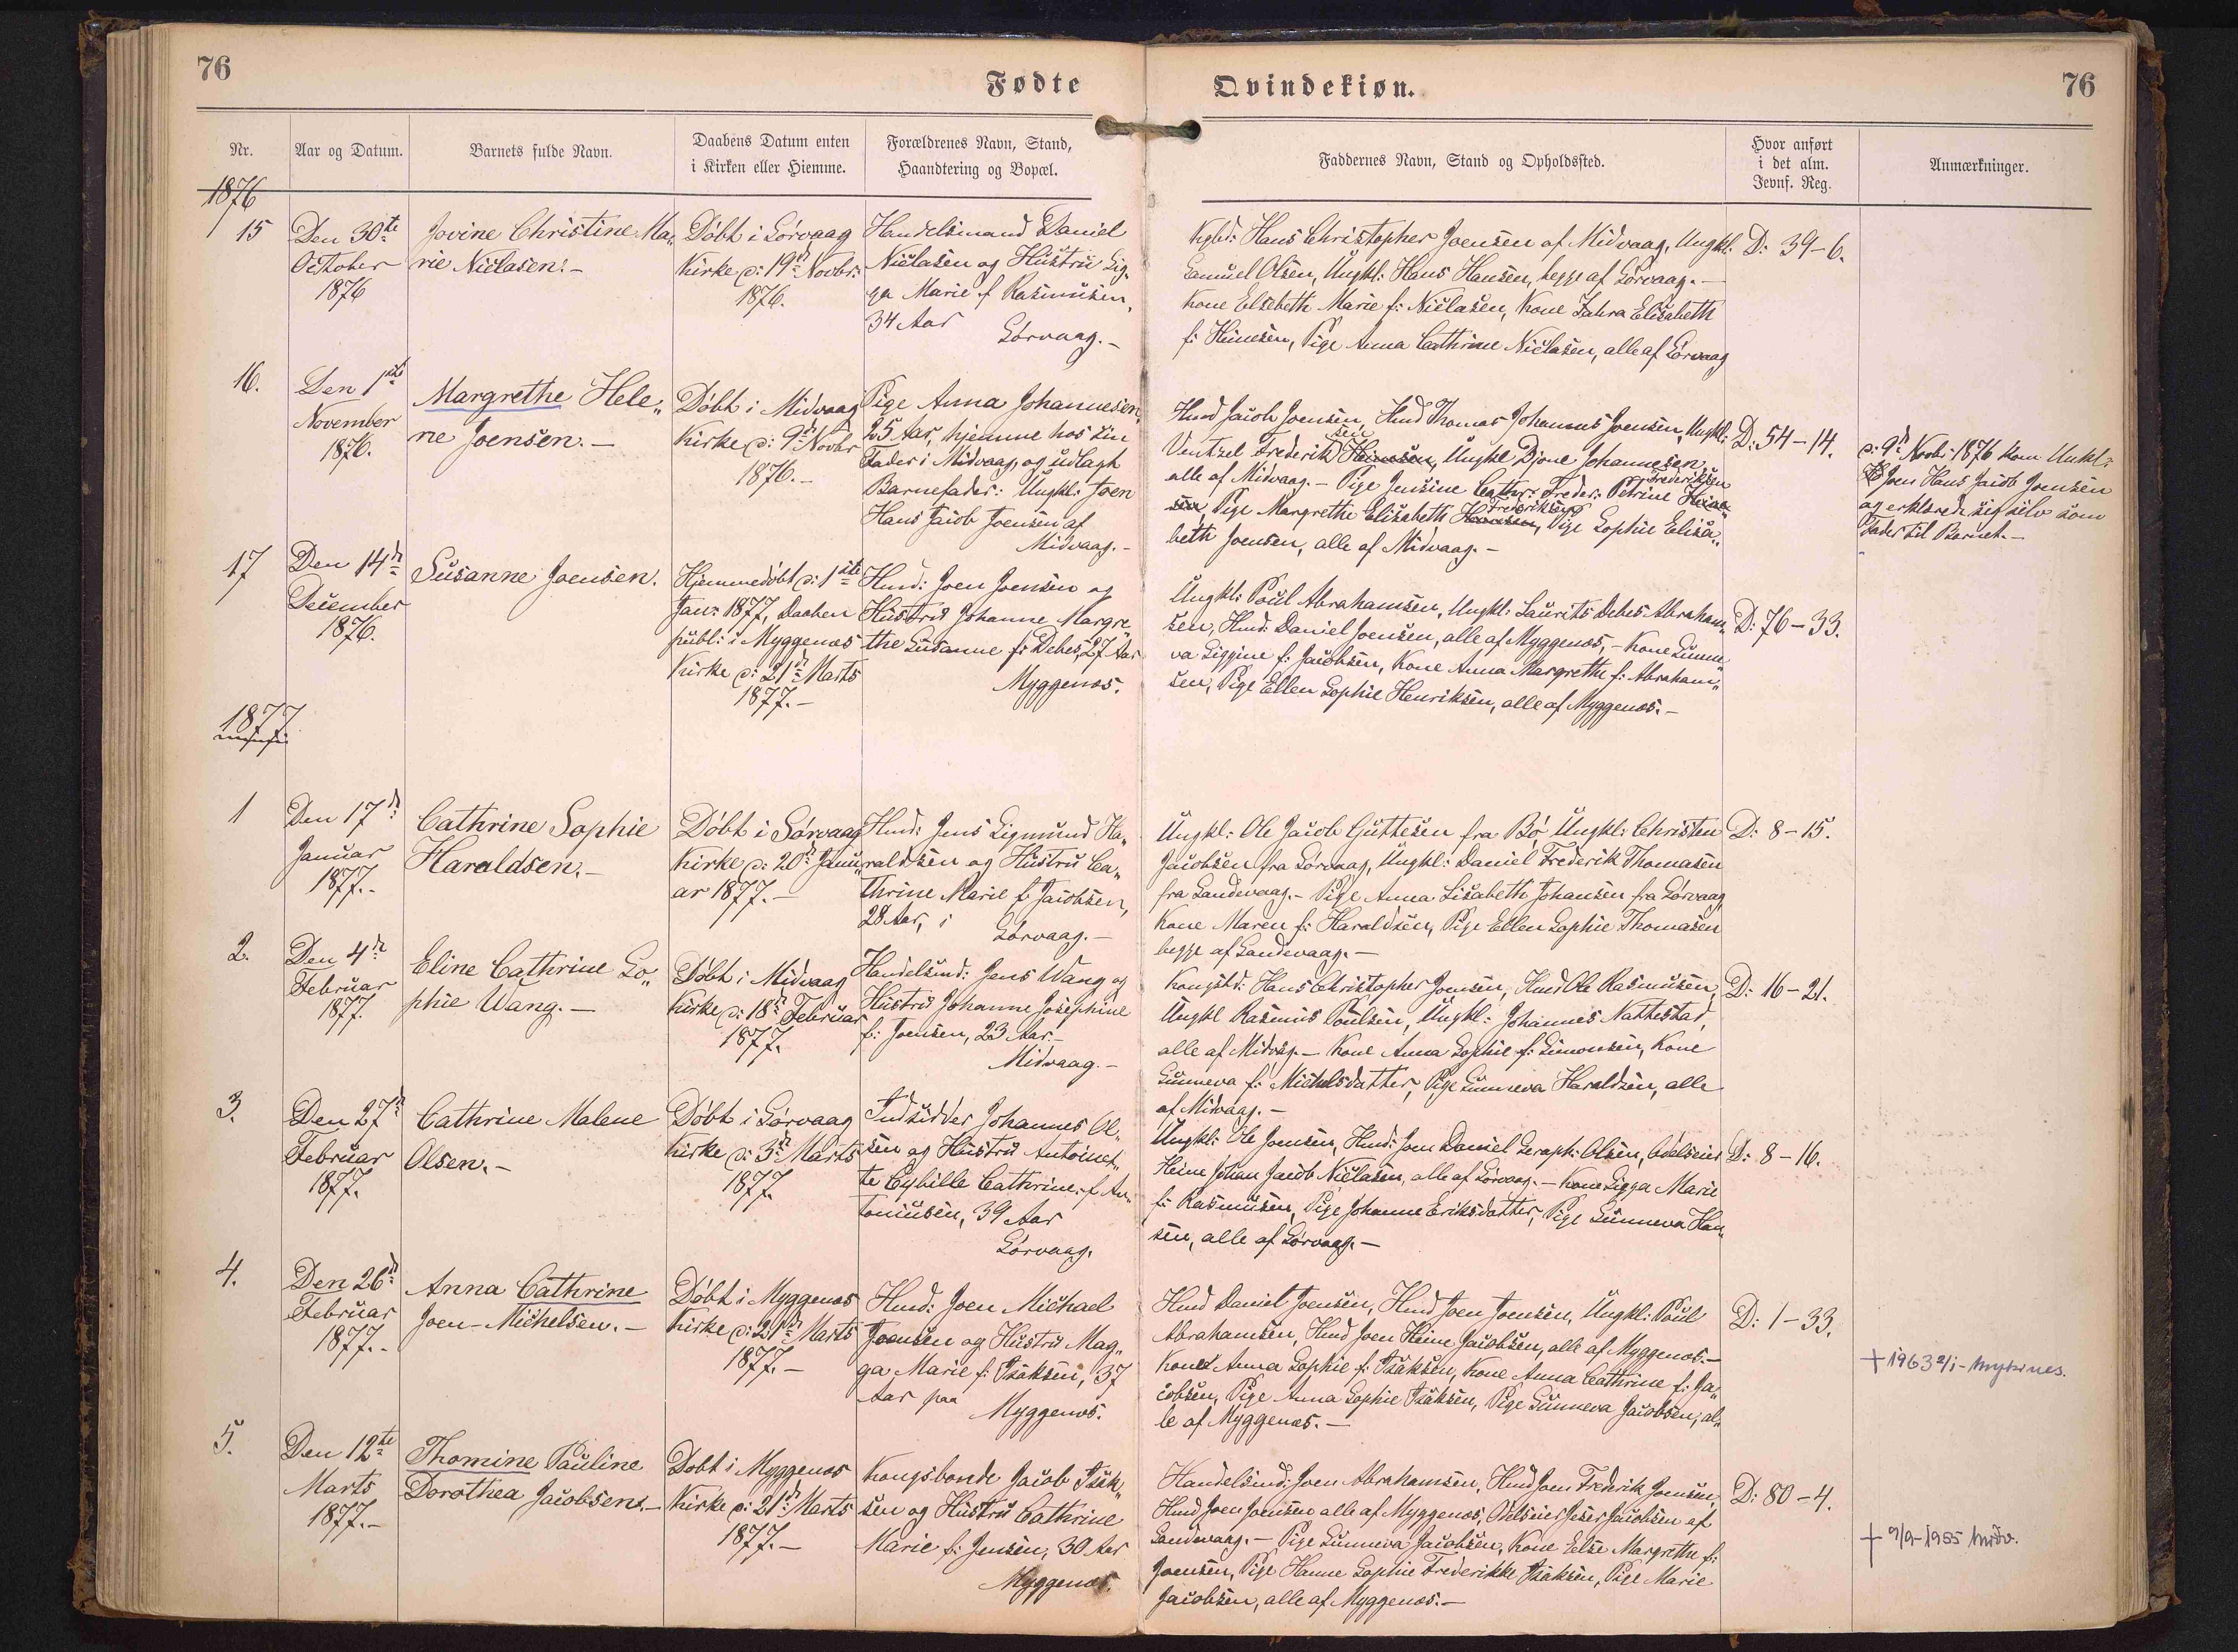 76
Fødte
Qvindekiøn.
76
Nr.
Aar og Datum.
Barnets fulde Navn.
Daabens Datum enten
i Kirken eller Hiemme.
Forældrenes Navn, Stand,
Haandtering og Bopæl.
Faddernes Navn, Stand og Opholdssted.
Hvor anført
i det alm.
Jevnf. Reg.
Anmærkninger.
1876
15
Den 30te
October
1876
Jovine Christine Ma„
rie Niclasen.-
Døbt i Sørvaag
Kirke d: 19d Novbr:
1876.
Handelsmand Daniel
Niclasen og Hustru Sig„
ga Marie f Rasmusen,
34 Aar
Sørvaag.-
Kgbd: Hans Christopher Joensen af Midvaag, Ungkl:
Samuel Olsen, Ungkl: Hans Hansen, begge af Sørvaag.-
Kone Elsebeth Marie f: Niclasen, Kone Zahra Elisabeth
f: Heinesen, Pige Anna Cathrine Niclasen, alle af Sørvaag
D: 39-6.
16.
Den 1ste
November
1876.
Margrethe Hele„
ne Joensen.-
Døbt i Midvaag
Kirke d: 9d Novbr
1876.-
Pige Anna Johannesen,
25 Aar, hjemme hos sin
Fader i Midvaag, og udlagt
Barnefader: Ungkl: Joen
Hans Jacob Joensen af
Midvaag.-
Hmd Jacob Joensen, Hmd Thomas Johannes Joensen, Ungkl:
Ventzel Frederiksen Heinesen, Ungkl Djone Johannesen,
alle af Midvaag.- Pige Jensine Cathr: Freder: Petrine Frederiksen Heine„
sen, Pige Margrethe Elisabeth Frederiksen Heinesen, Pige Sophie Elisa„
beth Joensen, alle af Midvaag.-
D: 54-14.
d: 9d Novbr: 1876 kom Unkl:
Joen Hans Jacob Joensen
og erklærede sig selv som
Fader til Barnet.-
17
Den 14d
December
1876.
Susanne Joensen.
Hjemmedøbt d: 1ste
Jan: 1877, Daaben
publ: i Myggenæs
Kirke d: 21d Marts
1877.-
Hmd: Joen Joensen og
Hustru Johanne Margre„
the Susanne f: Debes, 27 Aar
Myggenæs.
Ungkl: Poul Abrahamsen, Ungkl: Laurits Debes Abraham„
sen, Hmd: Daniel Joensen, alle af Myggenæs,- Kone Sunne„
va Siggine f: Jacobsen, Kone Anna Margrethe f: Abraham„
sen, Pige Ellen Sophie Henriksen, alle af Myggenæs.-
D: 76-33.
1877
1
Den 17d
Januar
1877.-
Cathrine Sophie
Haraldsen.-
Døbt i Sørvaag
Kirke d: 20d Janu„
ar 1877.-
Hmd: Jens Sigmund Ha„
raldsen og Hustru Ca„
thrine Marie f. Jacobsen,
28 Aar, i
Sørvaag.-
Ungkl: Ole Jacob Guttesen fra Bø, Ungkl: Christen
Jacobsen fra Sørvaag, Ungkl: Daniel Frederik Thomasen
fra Sandevaag.- Pige Anna Lisabeth Johansen fra Sørvaag,
Kone Maren f: Haraldsen, Pige Ellen Sophie Thomasen
begge af Sandevaag.-
D: 8-15.
2.
Den 4d
Februar
1877.
Eline Cathrine So„
phie Wang.-
Døbt i Midvaag
Kirke d: 18d Februar
1877.
Handelsmd: Jens Wang og
Hustru Johanne Josephine
f: Joensen, 23 Aar.-
Midvaag.-
Kongsbd: Hans Christopher Joensen, Hmd Ole Rasmusen,
Ungkl Rasmus Poulsen, Ungkl: Johannes Nattestad,
alle af Midvåg.- Kone Anna Sophie f: Simonsen, Kone
Sunneva f: Michelsdatter, Pige Sunneva Haraldsen, alle
af Midvaag.-
D: 16-21.
3.
Den 27d
Februar
1877.
Cathrine Malene
Olsen.-
Døbt i Sørvaag
Kirke d: 3d Marts
1877.
Indsidder Johannes Ol„
sen og Hustru Antoinet„
te Cybille Cathrine f An„
toniusen, 39 Aar
Sørvaag.
Ungkl: Ole Joensen, Hmd: Joen Daniel Seraph: Olsen, Odelseier
Heine Johan Jacob Niclasen, alle af Sørvaag.- Kone Sigga Marie
f: Rasmusen, Pige Johanne Eriksdatter, Pige Sunneva Han„
sen, alle af Sørvaag.-
D: 8-16.
4.
Den 26d
Februar
1877.-
Anna Cathrine
Joen-Michelsen.-
Døbt i Myggenæs
Kirke d: 21d Marts
1877.-
Hmd: Joen Michael
Joensen og Hustru Mag„
ga Marie f: Isaksen, 37
Aar paa
Myggenæs.
Hmd Daniel Joensen, Hmd Joen Joensen, Ungkl: Poul
Abrahamsen, Hmd Joen Heine Jacobsen, alle af Myggenæs.-
Kone Anna Sophie f: Isaksen, Kone Anna Cathrine f: Ja„
cobsen, Pige Anna Sophie Isaksen, Pige Sunneva Jacobsen, al„
le af Myggenæs.-
D: 1-33.
+ 1963 2/1 - Mykines.
5.
Den 12te
Marts
1877.-
Thomine Pauline
Dorothea Jacobsen.-
Døbt i Myggenæs
Kirke d: 21d Marts
1877.-
Kongsbonde Jacob Isak„
sen og Hustru Cathrine
Marie f: Jensen, 30 Aar
Myggenæs.
Handelsmd: Joen Abrahamsen, Hmd Joen Frederik Joensen,
Hmd Joen Joensen alle af Myggenæs, Odelseier Jeser Jacobsen af
Sandevaag.- Pige Sunneva Jacobsen, Kone Else Margrethe f:
Joensen, Pige Hanne Sophie Frederikke Isaksen, Pige Marie
Jacobsen, alle af Myggenæs.-
D: 80-4.
+ 9/9-1955 Miðv.